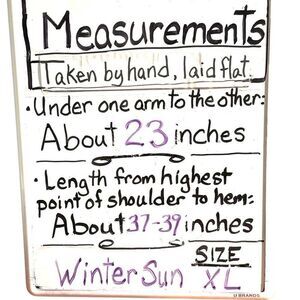 Measurements
Taken by hand, laid flat.
• Under one arm to the other:
About 23 inches
• Length from highest
point of shoulder to hem:
About 37-39 inches
SIZE
Winter Sun XL
U BRANDS